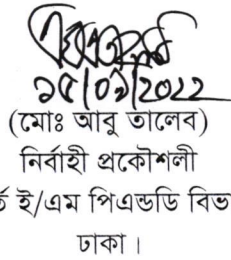 ১৫/০৯/2022
(মোঃ আবু তালেব)
নির্বাহী প্রকৌশলী
ই/এম পিএন্ডডি
ঢাকা।